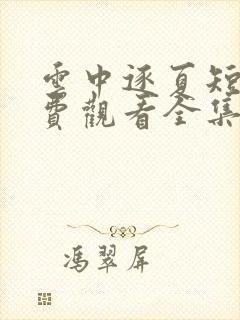 雲中逐夏短
費觀看全集
馮翠屏